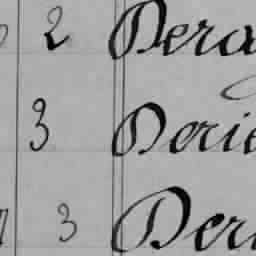 2 Dera
3 Derie
3 Der